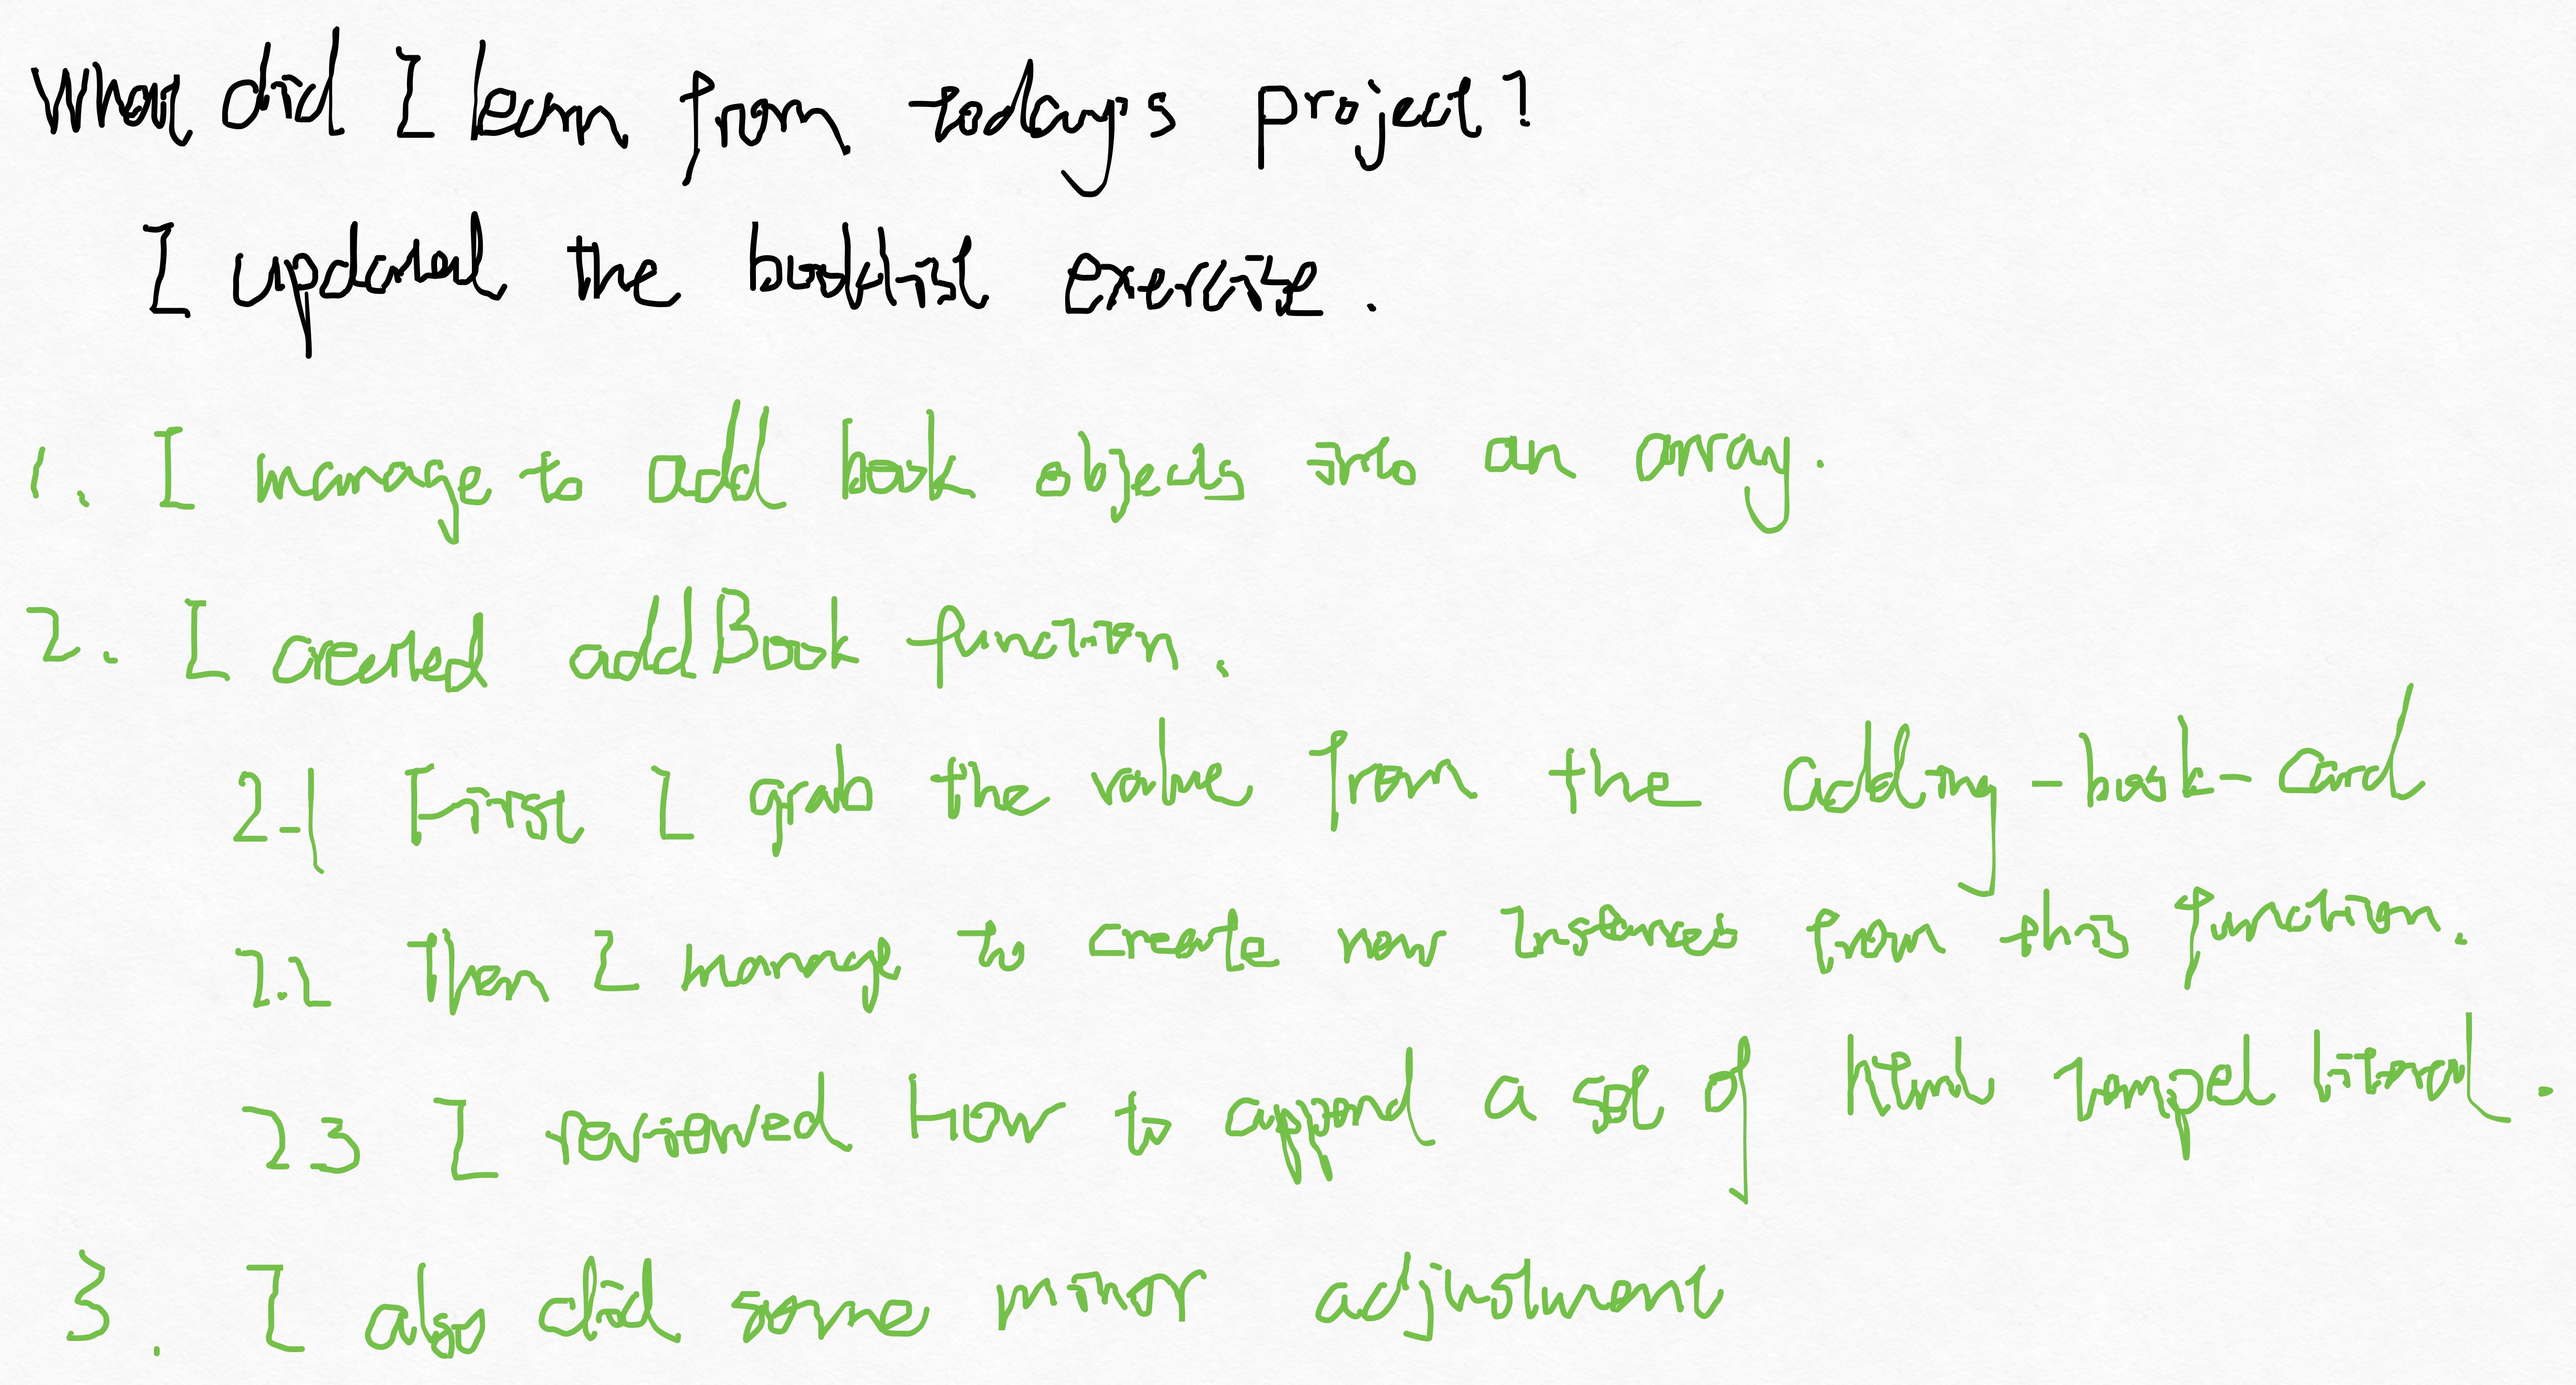 What did I learn from today's project?
I updated the booklist exercise.
1. I manage to add book objects into an array.
2. I created addBook function.
2-1 First I grab the value from the adding-book-card
2.2 Then I manage to create new instances from this function.
2.3 I reviewed How to append a set of html tempel literal.
3. I also did some minor adjustment